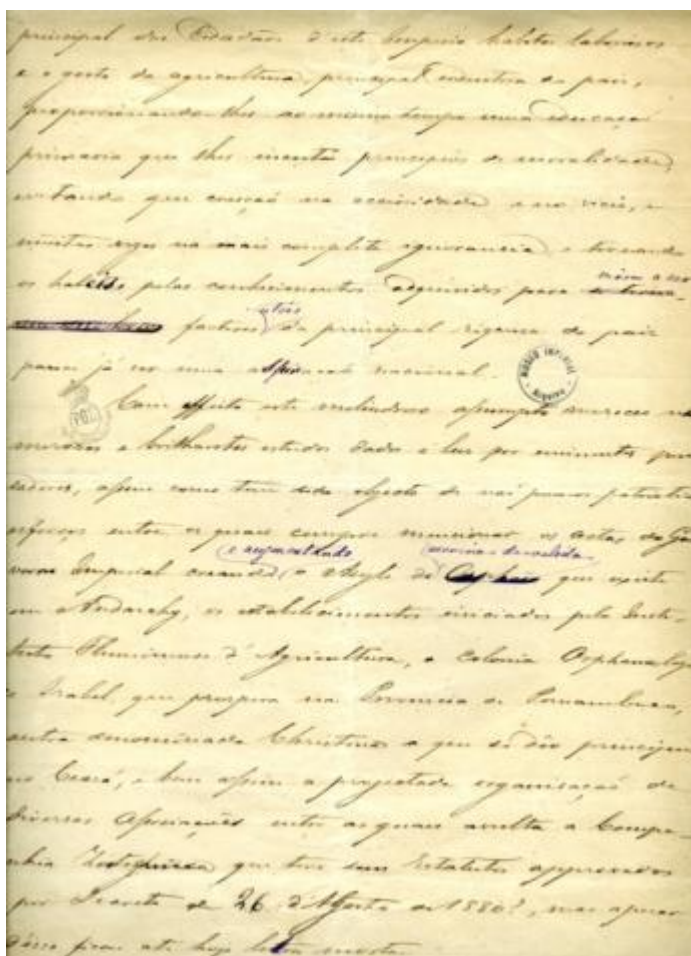 principal dos Cidadãos d'este Imperio habitos laboriosos
e o gosto da agricultura, principal industria do paiz,
proporcionando-lhes ao mesmo tempo uma educaçaõ
primaria que lhes incuta principios de moralidade,
evitando que cresçaõ na ociosidade e no vicio, e
muitas vezes na mais completa ignorancia, e tornando
os habeis pelos conhecimentos adquiridos para
factores da principal riqueza do paiz
parece já ser uma aspiraçaõ nacional.
MUSEU IMPERIAL
Arquivo
Com effeito este melindroso assumpto mereceo
e brilhantes estudos dados á luz por eminentes pen
sadores, assim como tem sido objecto de naõ poucos patrioticos
esforços entre os quaes cumpre mencionar os actos do Go
e augmentado menores desvalidos
verno Imperial creando o Asylo de que existe
em Andarahy, os estabelecimentos iniciados pelo Insti-
tuto Fluminense d'Agricultura, a Colonia Orphanologi
ca Isabel, que prospera na Provincia de Pernambuco,
outra denominada Christina a que se deo principio
no Ceará, e bem assim a projectada organisaçaõ de
diversas Associações entre as quaes avulta a Compa-
nhia que teve seus Estatutos approvados
por Decreto de 26 d'Agosto de 1880?, mas apezar
disso ficou até hoje letra morta.